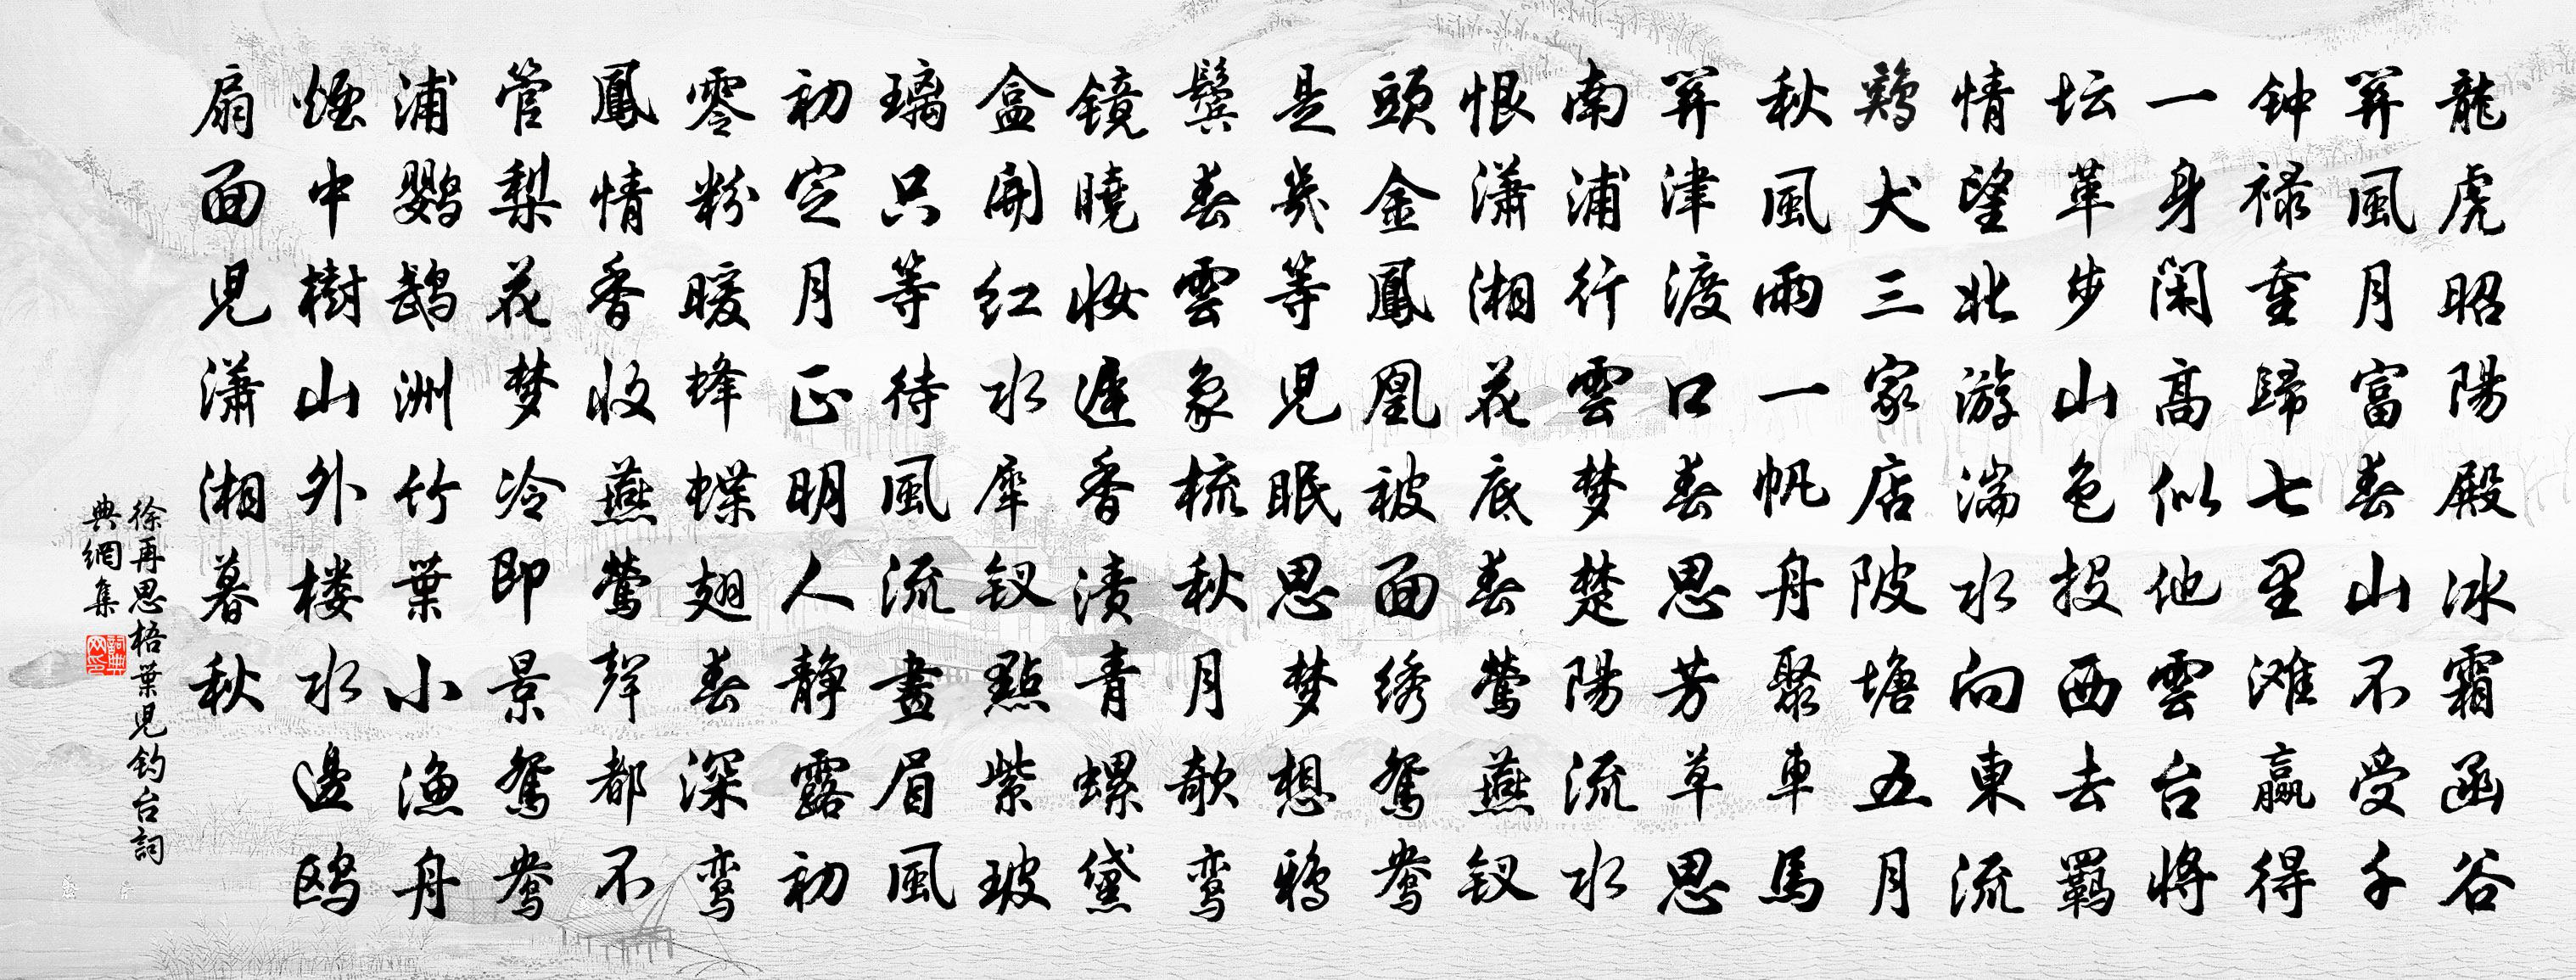 龍虎昭陽殿冰霜函谷
關風月富春山不受千
钟禄重歸七里滩贏得
一身闲高似他雲台將
坛革步山色投西去羁
情望北游湍水向東流
鶏犬三家店陂塘五月
秋風雨一帆舟聚車馬
關津渡口春思芳草思
南浦行雲梦楚陽流水
恨潇湘花底春莺燕钗
頭金鳳凰被面绣鴛鴦
是幾等兒眠思梦想鴉
鬓春雲象梳秋月欹鸾
镜曉妆遲香渍青螺黛
盒開红水犀钗點紫玻
璃只等待風流畫眉風
初定月正明人静露初
零粉暖蜂蝶翅春深鸾
鳳情香收燕莺聲都不
管梨花梦冷即景鴛鴦
浦鹦鹉洲竹葉小漁舟
煙中樹山外楼水邊鸥
扇面兒潇湘暮秋
徐再思梧葉兒钓台詞
典網集
詞典网印